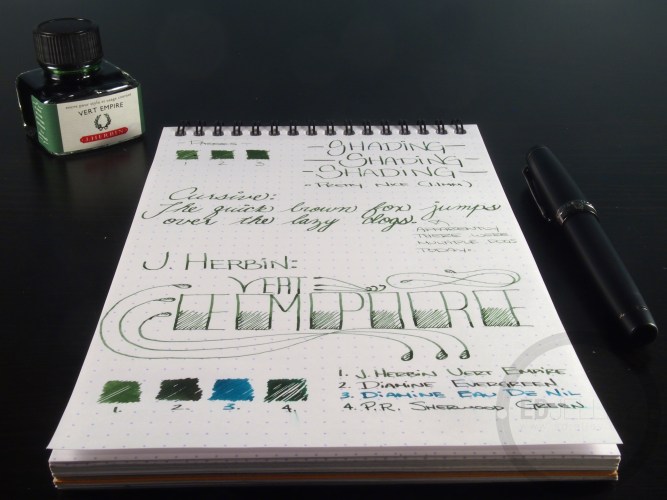 VERT EMPIRE
J. HERBIN
- Passes -
1 2 3
-SHADING-
-SHADING-
-SHADING-
Cursive:
The quick brown fox jumps
over the lazy dogs.
APPARENTLY
THERE WERE
MULTIPLE DOGS
TODAY.
J. HERBIN:
VERT
EMPIRE
1. 2. 3. 4.
1. J. HERBIN VERT EMPIRE
2. DIAMINE EVERGREEN
3. DIAMINE EAU DE NIL
4. P.R. SHERWOOD GREEN